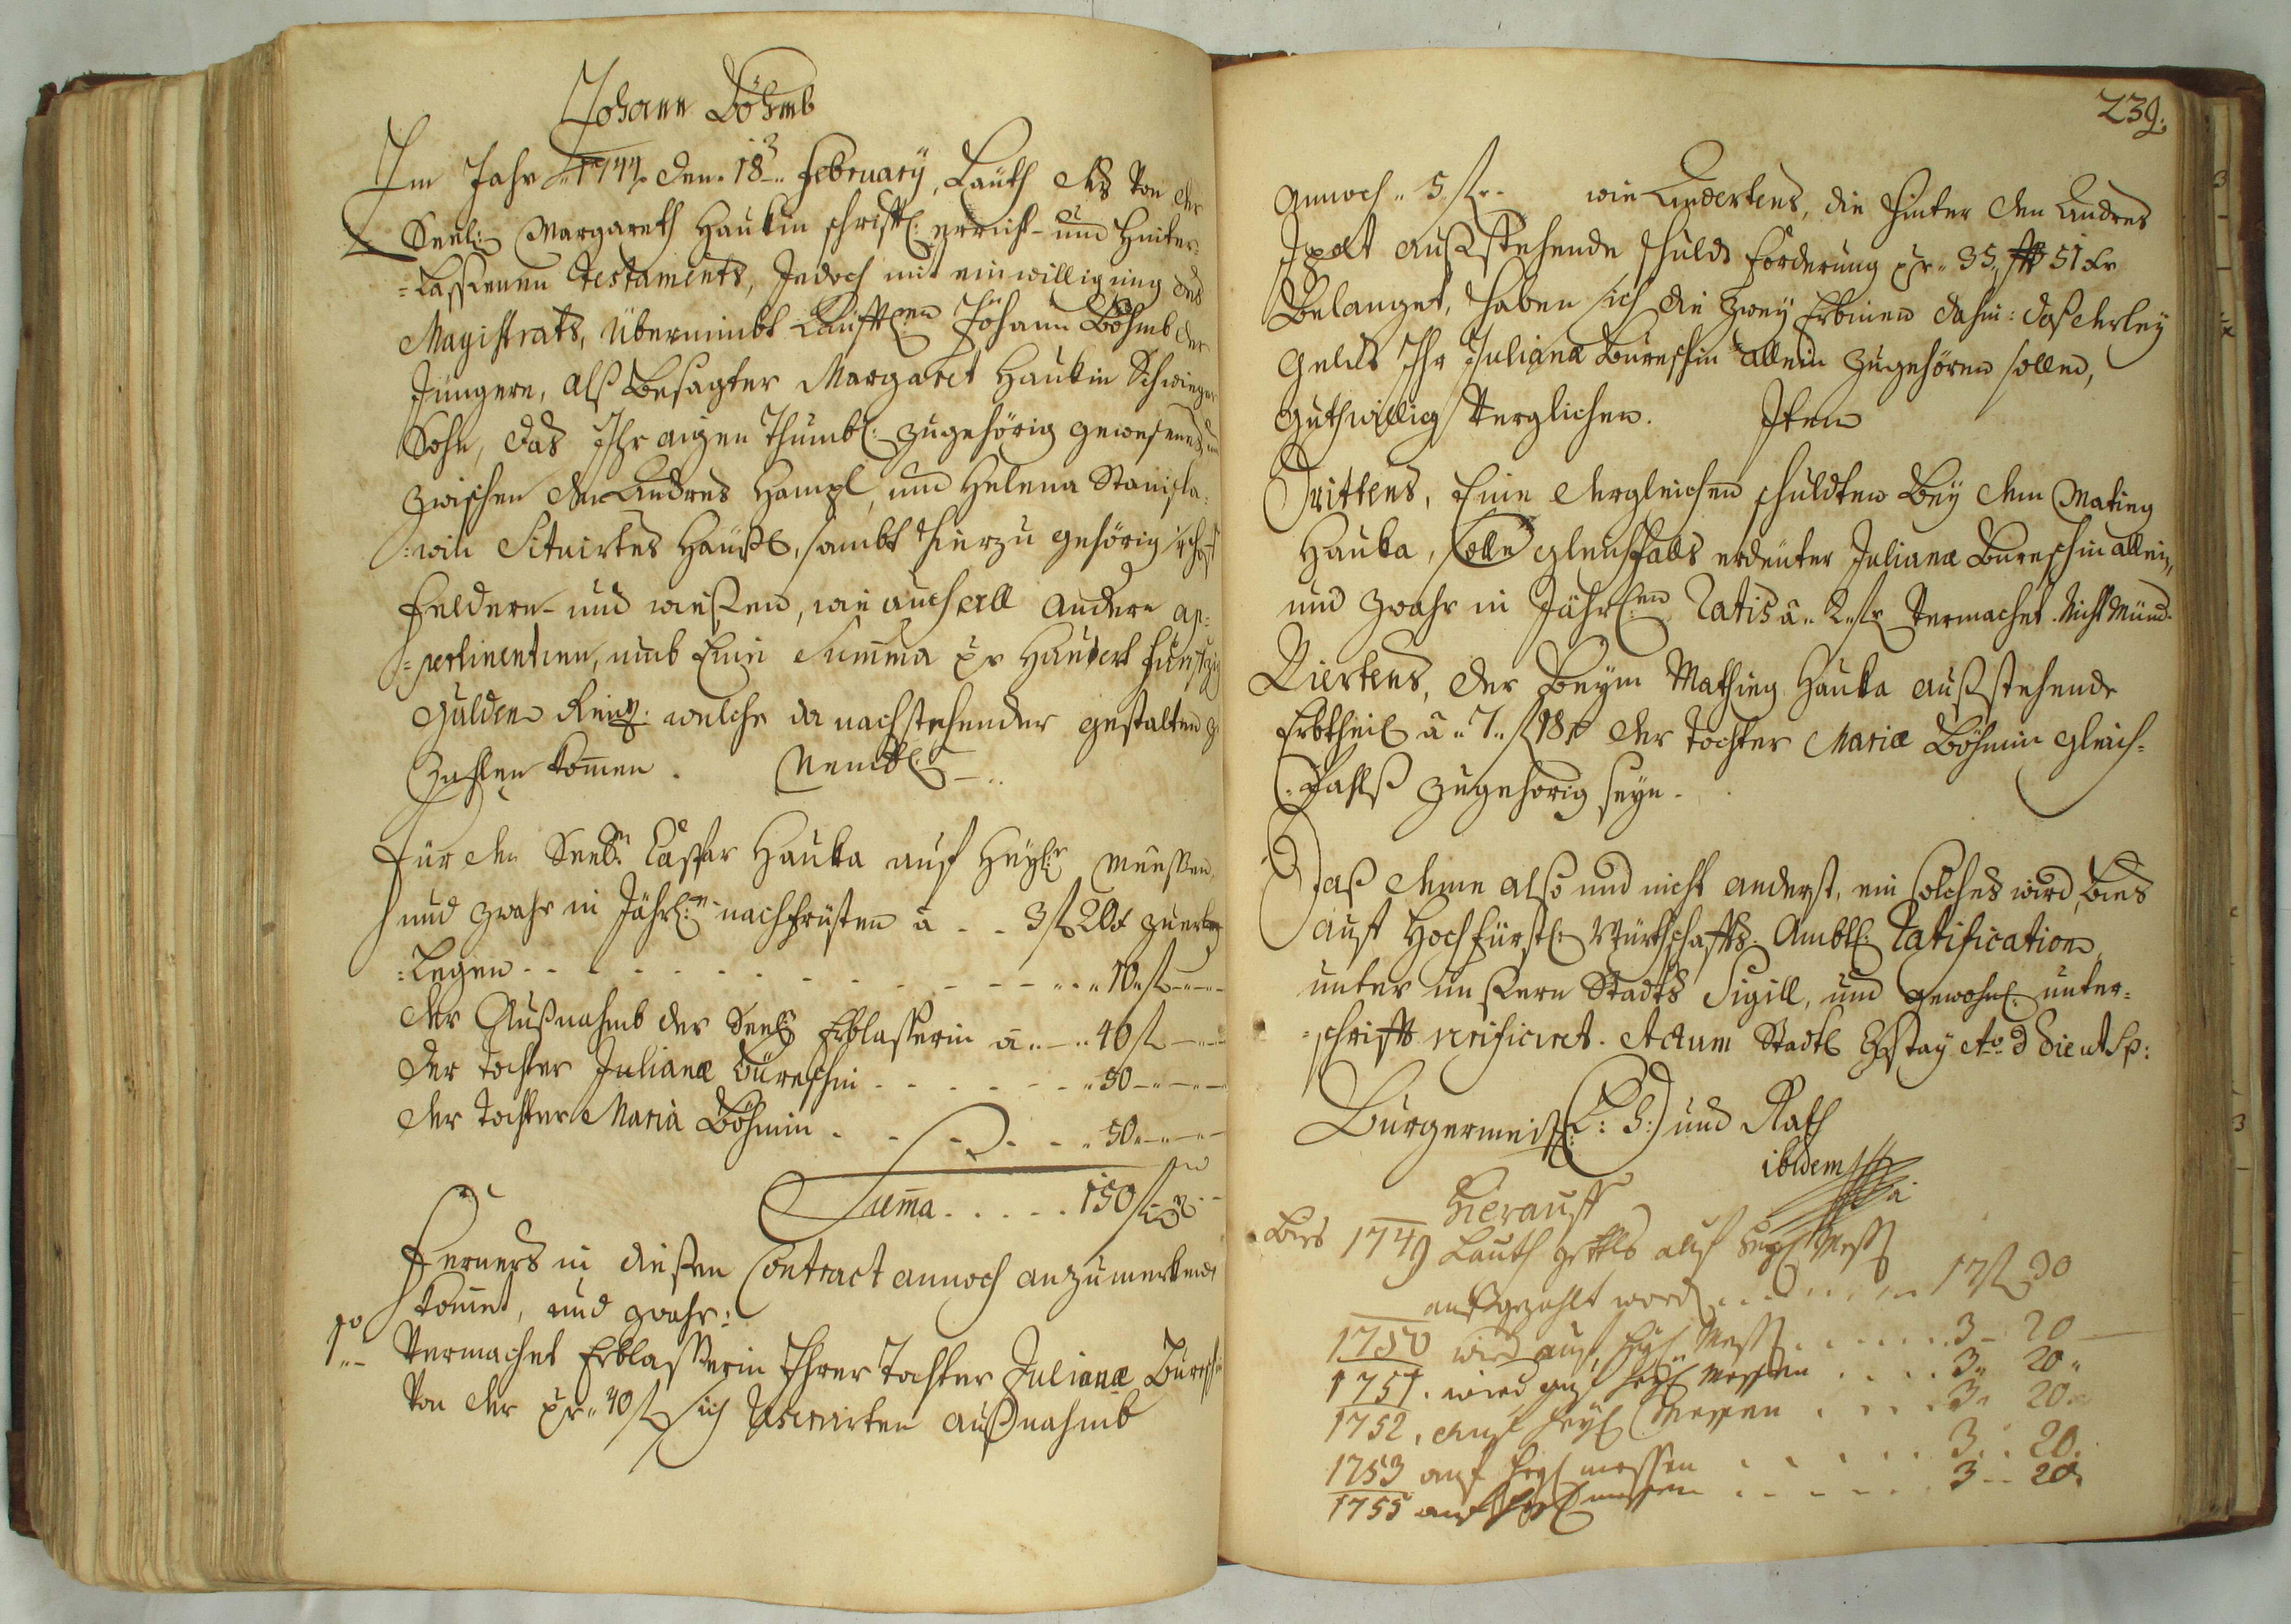 Johann Böhmb
Im Jahr 1744 den 18 February, Lauth des von der
Seel: Margareth Haukin schriftl: erricht- und hinter-
=lassenen Testaments, Jedoch mit einwilligung des
Magistrats, Übernimbt Käuffl:en Johann Böhmb der
Jüngere, alß besagter Margaret Haukin Schwieger
Sohn, das Ihr aigenthumbl: zugehörig gewesene,
zwischen den Andres Hampl, und Helena Stanisla=
=win Situirtes Häußl, sambt hierzu gehörig
feldern- und wießen, wie auch all andere ap=
=pertinentien, umb Eine Summa pr Hundert funfzig
Gulden Rein: welche in nachstehender gestalten zu
Zahlen kommen. Nembl:
Für den Seel:n Caspar Hauka auf Heyl: Meessen,
und zwahr in Jährl:n nachfrüsten à 3 f 20 x zuer=
=legen 10 f
der Außnahmb der Seel: Erblasserin à 40 f
der Tochter Juliana Bureschin 50
der Tochter Maria Böhmin 50
Suma 150 f
Ferners in dießen Contract annoch anzumerken
kommet, und zwahr:
1mo Vermachet Erblasserin Ihrer Tochter Juliana Bureschin
Von der pr 40 f sich Reservirten außnahmb
239.
annoch 5 f wie Andertens, die hinter den Andres
außstehende schuldforderung pr 35 f 51 kr
Belanget, haben sich die zwey Erbinen dahin: daß derley
Gelds Ihr Juliana Bureschin allein zugehören sollen,
guthwillig verglichen. Item
Drittens, Eine dergleichen schuldten bey dem Mathieg
Hauka, solle gleichfalls erdeuter Juliana Bureschin allein,
und zwahr in Jährl:en Ratis à 2 f vermachet. Nicht Münd.
Viertens, der beym Mathieg Hauka außstehende
Erbtheil à 7 f 18 x der Tochter Maria Böhmin gleich=
=fahlß zugehörig seyn.
Daß deme also und nicht anderst, ein solches wird, bies
auf Hochfürstl: Würthschaffts Ambtl: Ratification
unter unßern Stadts Sigill, und gewohnl: unter=
=schrifft verificiret. Actum Stadtl ao d die ut Sp:
Burgermeist: (L: S:) und Rath
ibidem
Hierauff
Bies 1749 Lauth auf heyl Mess
außgezahlt word 17 f 30
1750 wird auf heyl Mess 3 20
1751. wird auf heyl Messen 3 20
1752, auf heyl Messen 3 20
1753 auf heyl messen 3 20
1755 auf heyl messen 3 20